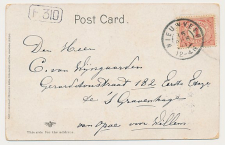 F 30
Post Card.
NIEUWVEEN
Den Heer
C. van Wijngaarden
Gerard Doustraat 182 Eerste Etage
de S' Gravenhage
van opoe voor Willem